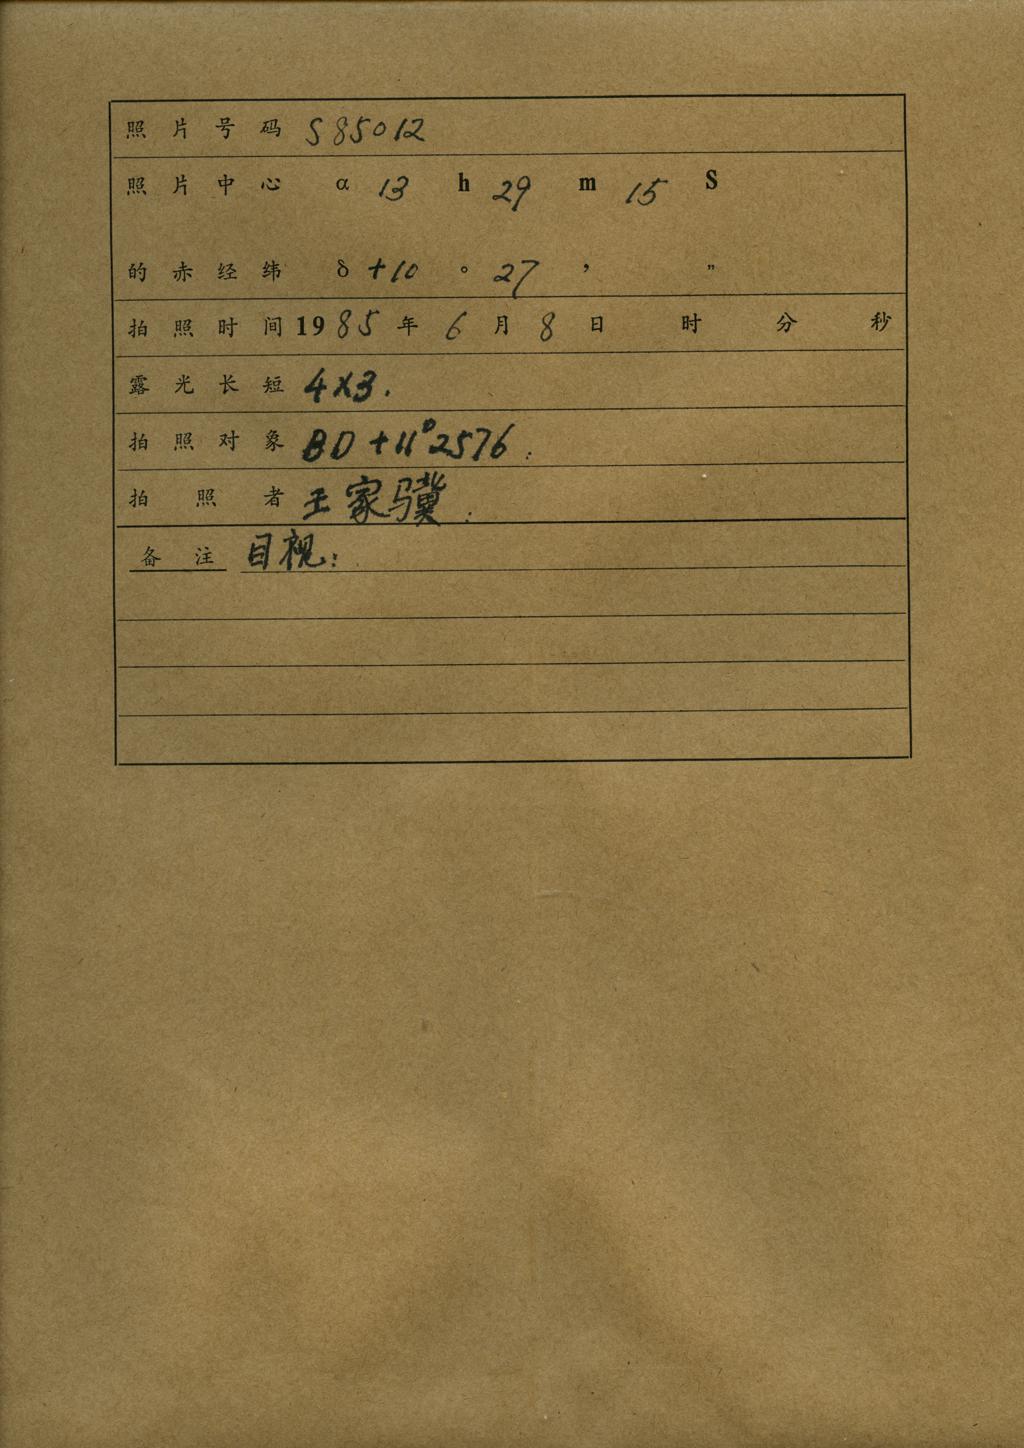 照片号码 S85012
照片中心 α 13 h 29 m 15 S
的赤经纬 δ +10 ° 27 ’ ”
拍照时间 1985年 6月 8日 时 分 秒
露光长短 4X3.
拍照对象 BD +11° 2576.
拍照者 王家骥
备注 目视: